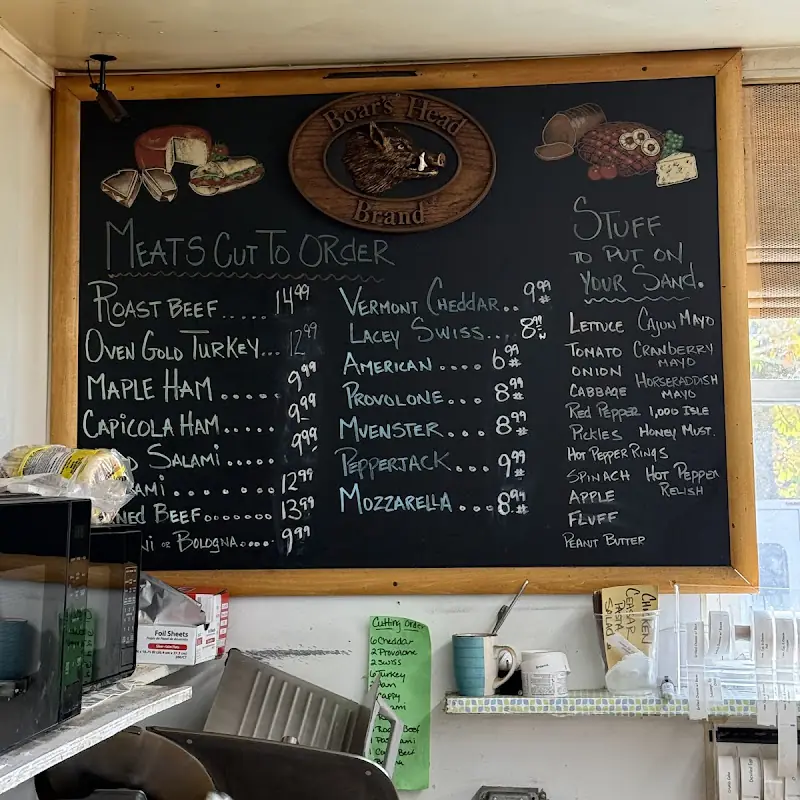 Boar's Head
Brand
MEATS CUT TO ORDER
ROAST BEEF..... 14.99
OVEN GOLD TURKEY... 12.99
MAPLE HAM ..... 9.99
CAPICOLA HAM .... 9.99
SALAMI ..... 9.99
AMI ...... 12.99
NED BEEF....... 13.99
NI OR BOLOGNA.... 9.99
VERMONT CHEDDAR.. 9.99 #
LACEY SWISS... 8.99
AMERICAN .... 6.99 #
PROVOLONE... 8.99 #
MUENSTER... 8.99 #
PEPPERJACK... 9.99 #
MOZZARELLA ... 8.99 #
STUFF
TO PUT ON
YOUR SAND.
LETTUCE
TOMATO
ONION
CABBAGE
RED PEPPER
PICKLES
HOT PEPPER RINGS
SPINACH
APPLE
FLUFF
PEANUT BUTTER
CAJUN MAYO
CRANBERRY
MAYO
HORSERADDISH
MAYO
1,000 ISLE
HONEY MUST.
HOT PEPPER
RELISH
Foil Sheets
Cutting Order
6 Cheddar
2 Provolone
2 Swiss
Turkey
Beef
CHICKEN
CEASAR
PASTA
SALAD